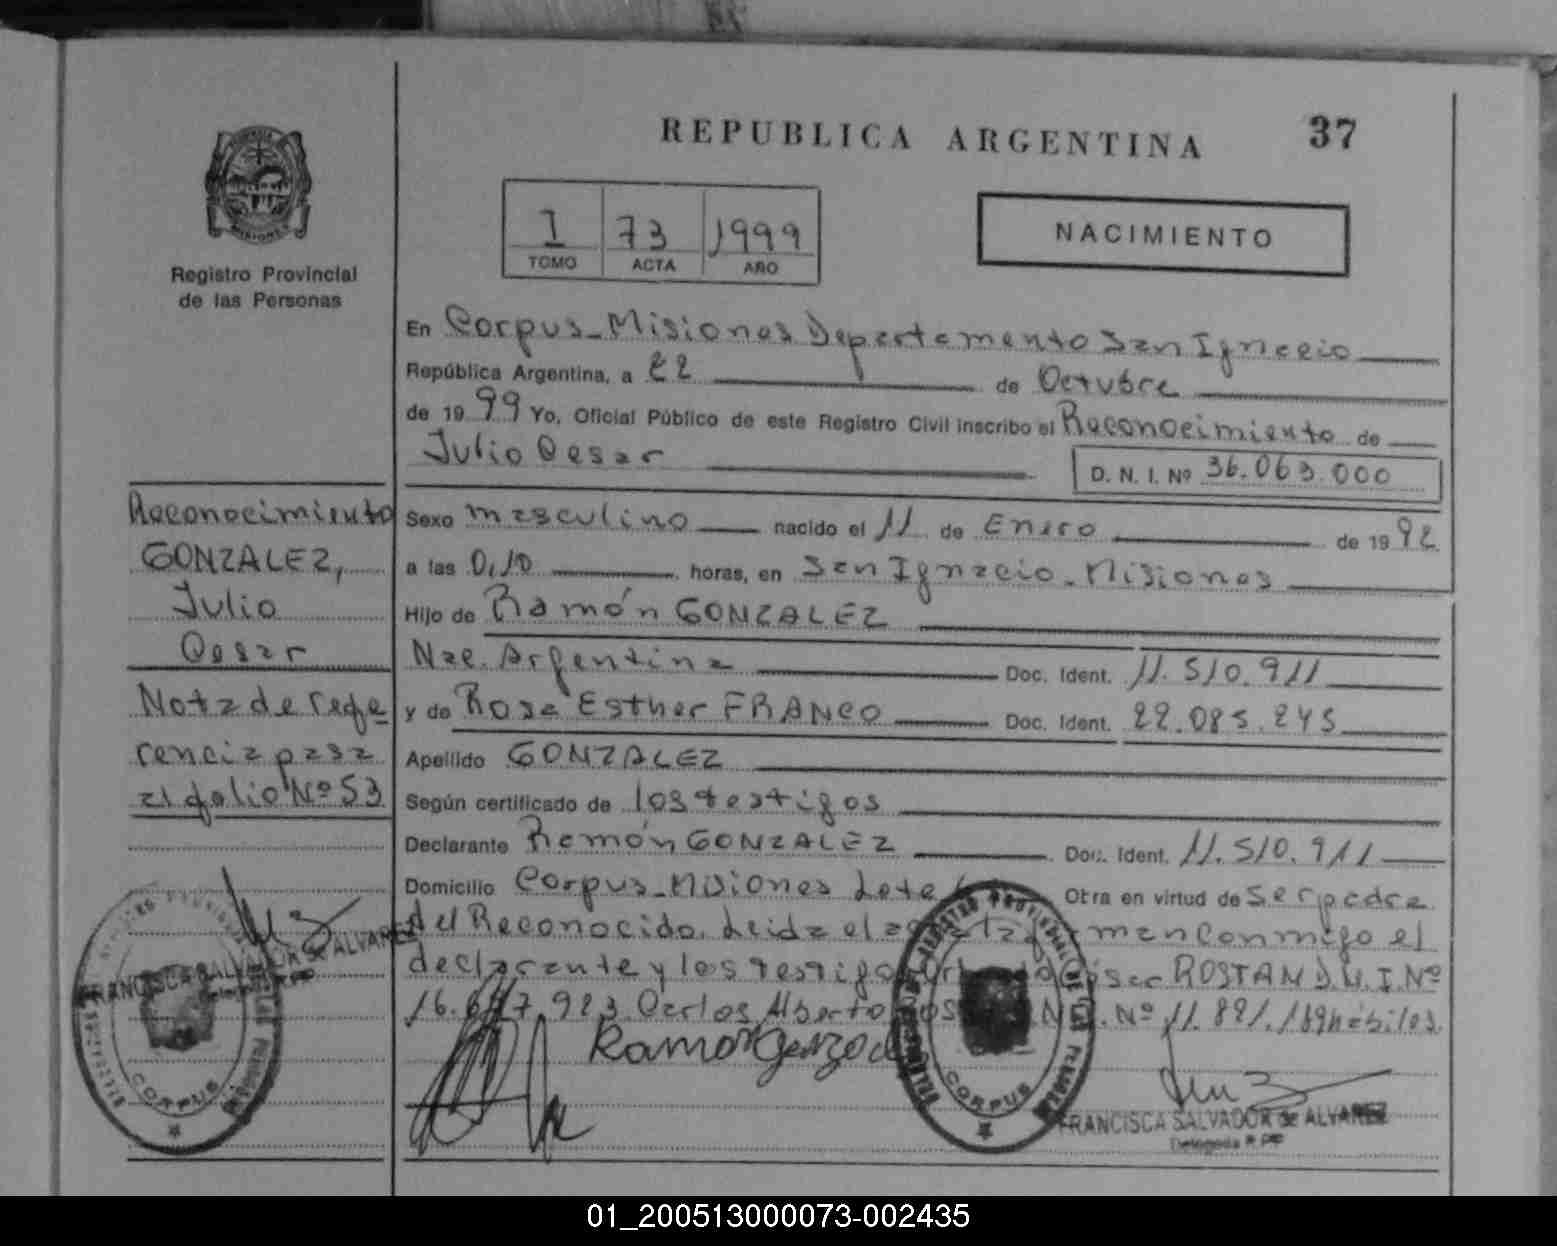 REPUBLICA ARGENTINA
37
Registro Provincial
de las Personas
I 73 1999
TOMO ACTA AÑO
NACIMIENTO
En Corpus-Misiones Departamento San Ignacio
República Argentina, a 22 de Octubre
de 1999 Yo, Oficial Público de este Registro Civil inscribo el Reconocimiento de
Julio Cesar
D. N. I. Nº 36.063.000
Reconocimiento
GONZALEZ,
Julio
Cesar
Nota de refe
rencia pasa
al folio Nº 53
Sexo masculino nacido el 11 de Enero de 1992
a las 0,10 horas, en San Ignacio-Misiones
Hijo de Ramón GONZALEZ
Nac. Argentina Doc. Ident. 11.510.911
y de Rosa Esther FRANCO Doc. Ident. 22.085.245
Apellido GONZALEZ
Según certificado de los testigos
Declarante Ramón GONZALEZ Doc. Ident. 11.510.911
Domicilio Corpus-Misiones Lote Otra en virtud de Ser padre
del Reconocido. Leida el man conmigo el
declarante y los testigos ROSTAN D.N.I.Nº
16. 7.923 Carlos Alberto Nº 11.881.189 hábiles.
FRANCISCA SALVADOR de ALVAREZ
CORPUS
Ramon Gonzalez
CORPUS
FRANCISCA SALVADOR de ALVAREZ
Delegada
01_200513000073-002435